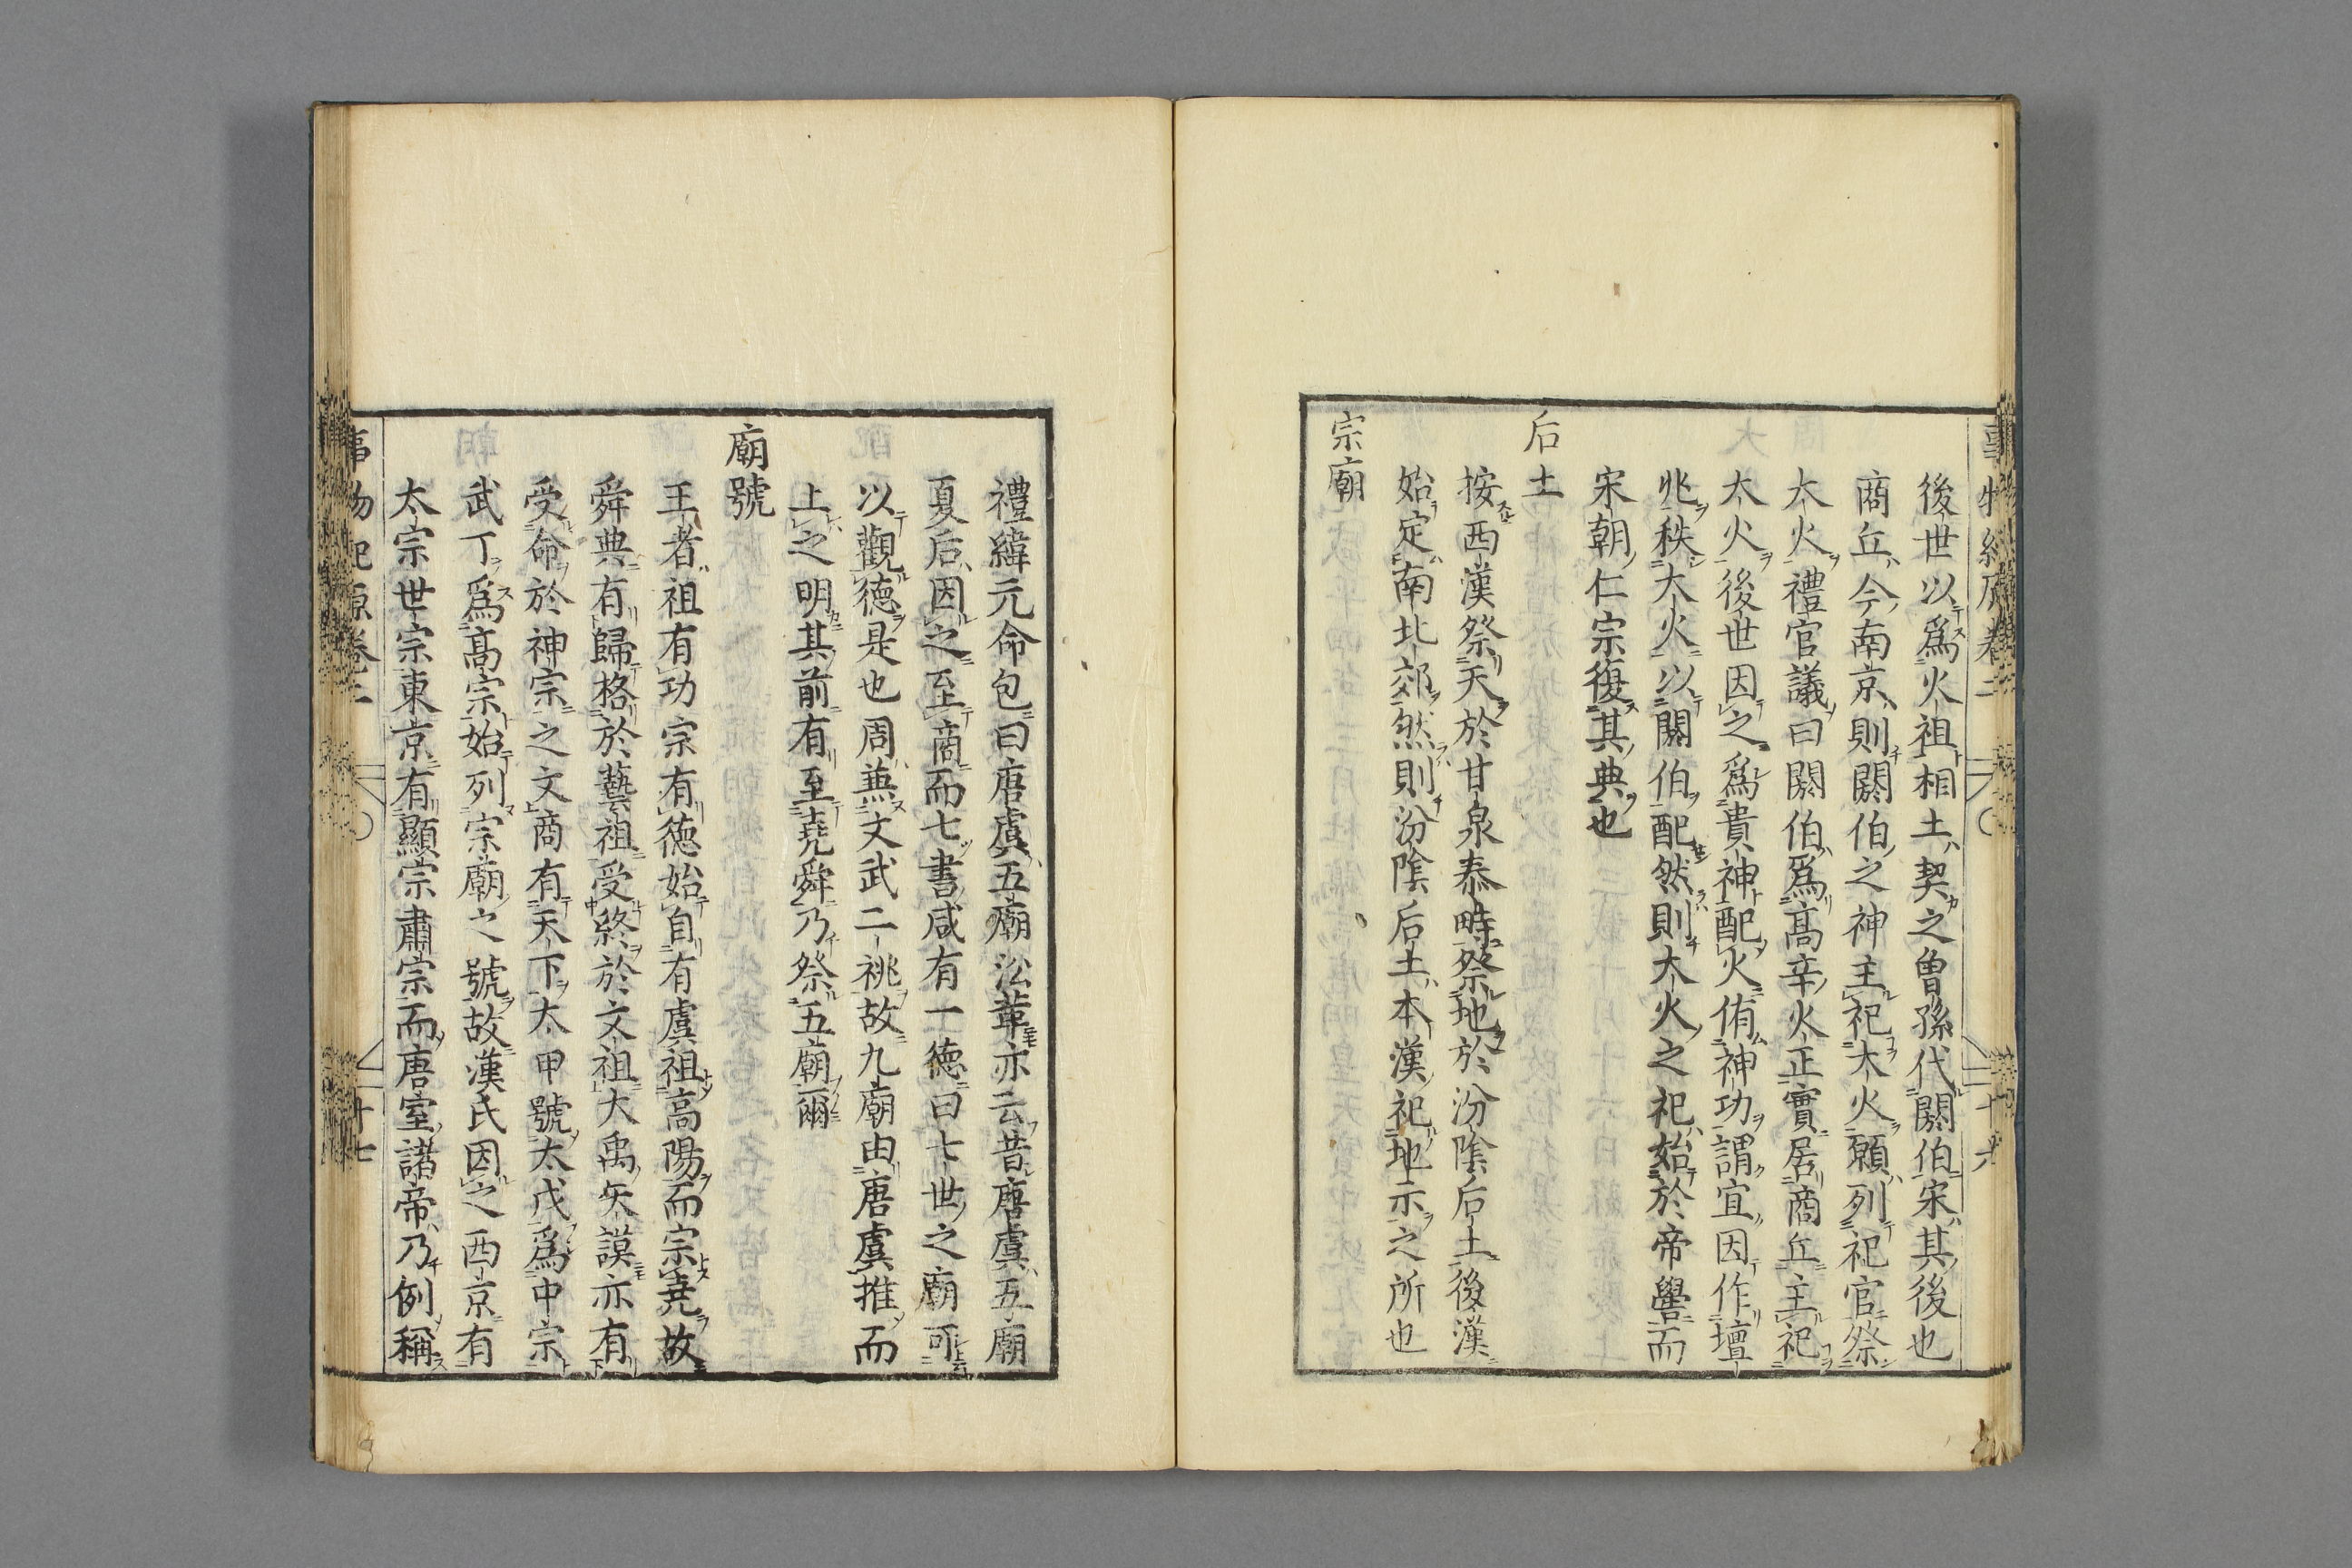 後世以爲火祖相土契之曽孫代閼伯宋其後也
商丘今南京則閼伯之神主祀大火願列祀官祭
大火禮官議曰閼伯爲髙辛火正實居商丘主祀
大火後世因之爲貴神配火侑神功謂宜因作壇
兆秩大火以閼伯配然則大火之祀始於帝嚳而
宋朝仁宗復其典也
后土
按西漢祭天於甘泉泰畤祭地於汾陰后土後漢
始定南北郊然則汾陰后土本漢祀地示之所也
宗廟
禮緯元命包曰唐虞五廟㳂革亦云昔唐虞五廟
夏后因之至商而七書咸有一德曰七世之廟可
以觀德是也周兼文武二祧故九廟由唐虞推而
上之明其前有至堯舜乃祭五廟爾
廟號
王者祖有功宗有德始自有虞祖高陽而宗堯故
舜典有歸格於藝祖受終於文祖大禹矢謨亦有
受命於神宗之文商有天下太甲號太戊爲中宗
武丁爲髙宗始列宗廟之號故漢氏因之西京有
太宗世宗東京有顯宗肅宗而唐室諸帝乃例稱
事物紀原卷二 十七